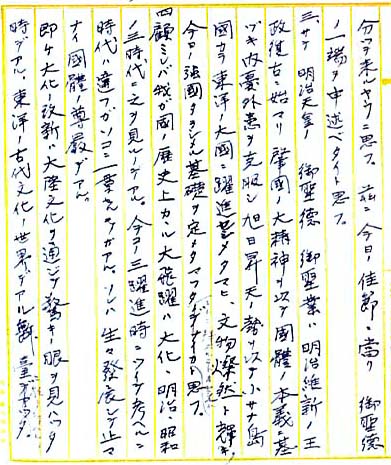 分ヲ来ルヤウニ思フ。茲ニ今日ノ佳節ニ當リ 御聖徳
ノ一端ヲ申述ベタイト思フ。
三、サテ 明治天皇ノ 御聖徳 御聖業ハ明治維新ノ王
政復古ニ始マリ 肇國ノ大精神ヲ以テ國體ノ本義ニ基
ヅキ内憂外患ヲ克服シ 旭日昇天ノ勢ヲ以テ小サナ島
國カラ東洋ノ大國ニ躍進 メタマヒ、文物燦然ト輝キ、
今日ノ強國タラシメル基礎ヲ定メタマフタ ト思フ。
四顧ミレバ我ガ國ノ歴史上カヽル大飛躍ハ大化、明治、昭和
ノ三時代ニ之ヲ見ルノデアル。今コノ三躍進時ニツイテ考ヘルニ
時代ハ違フガソコニ一貫スルモノガアル。ソレハ生々發展シテ止マ
ナイ國體ノ尊嚴デアル。
即チ大化ノ改新ハ大陸文化ヲ通ジテ驚キノ眼ヲ見ハッタ
時デアル、東洋ノ古代文化ノ世界デアル